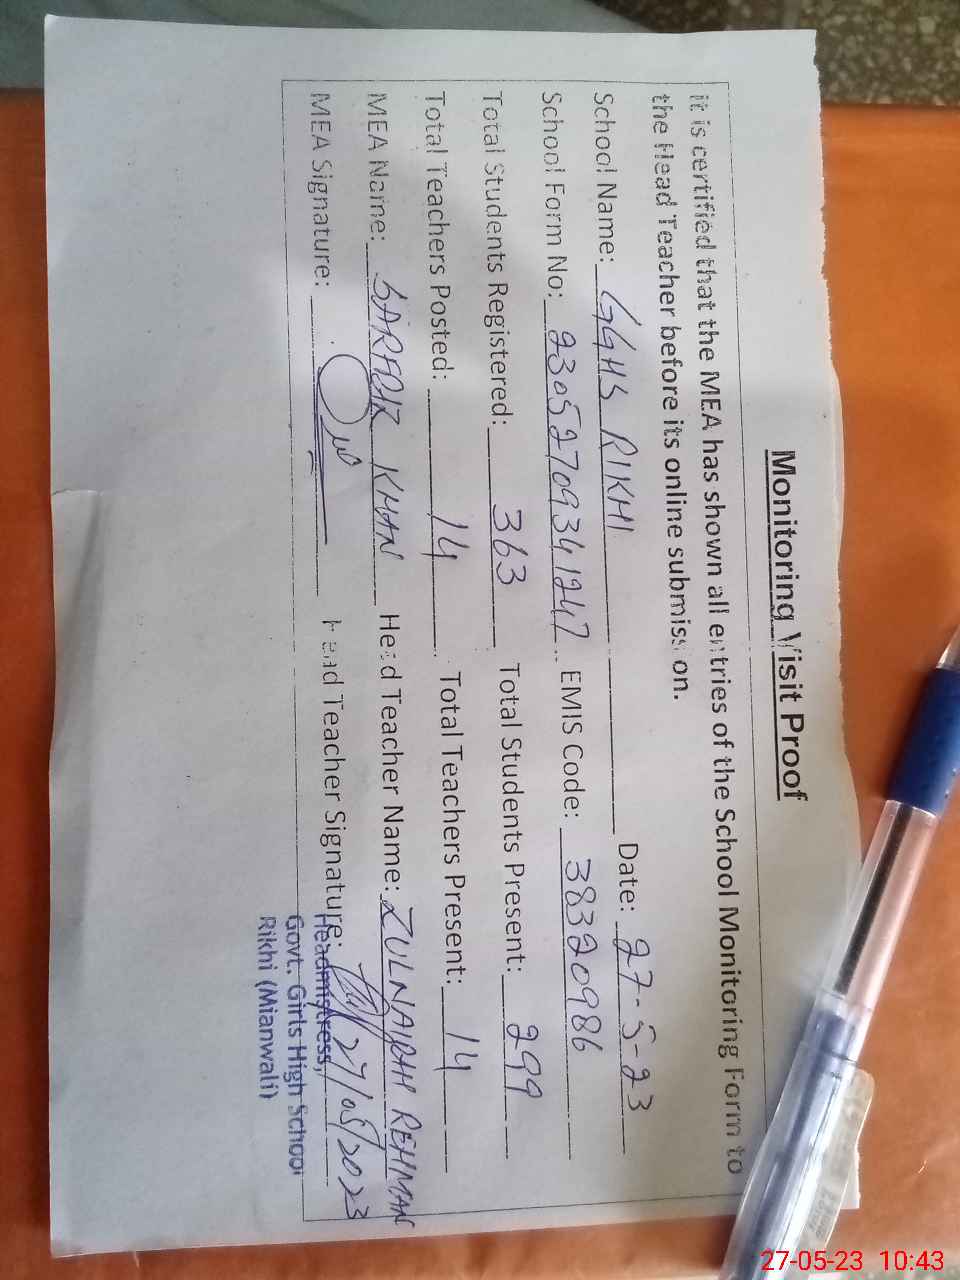 Monitoring Visit Proof
it is certified that the MEA has shown all entries of the School Monitoring Form to
the Head Teacher before its online submission.
School Name: GGHS RIKHI Date: 27-5-23
School Form No: 23052709341247 EMIS Code: 38320986
Total Students Registered: 363 Total Students Present: 299
Total Teachers Posted: 14 Total Teachers Present: 14
MEA Name: SARFDR KHAN Head Teacher Name: ZULNAIRAH REHMAN
MEA Signature: Head Teacher Signature: 27/05/2023
Headmistress,
Govt. Girls High School
Rikhi (Mianwali)
27-05-23 10:43